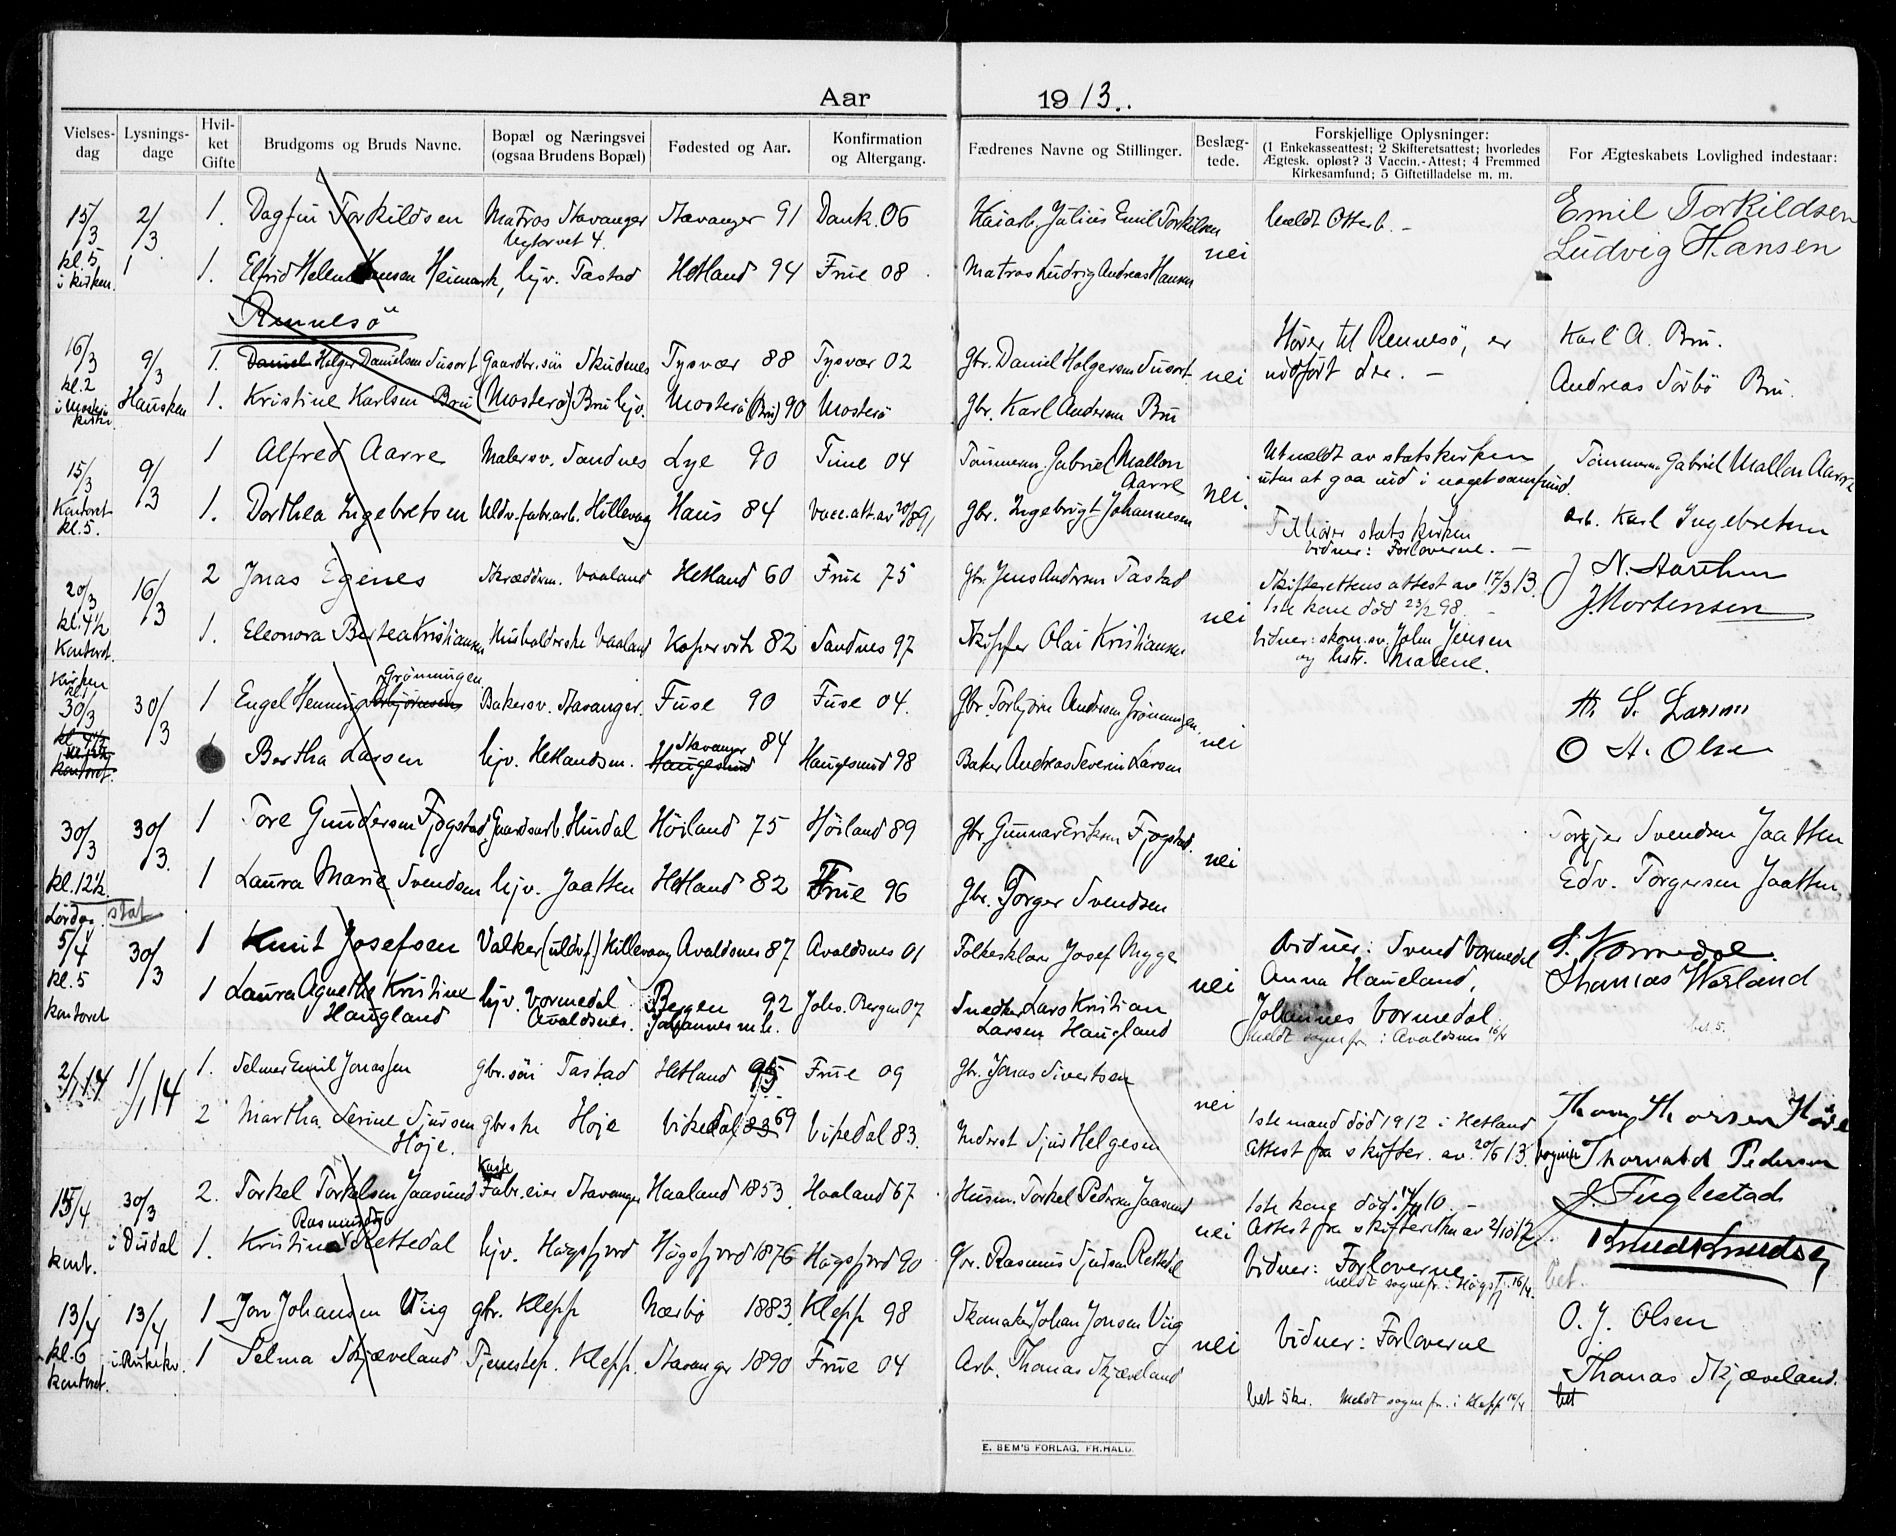 Aar 1913.
Vielses-dag
Lysnings-dage
Hvil-ket Gifte
Brudgoms og Bruds Navne.
Bopæl og Næringsvei (ogsaa Brudens Bopæl)
Fødested og Aar.
Konfirmation og Altergang.
Fædrenes Navne og Stillinger.
Beslæg-tede.
Forskjellige Oplysninger:
(1 Enkekasseattest; 2 Skifteretsattest; hvorledes
Ægtesk. opløst? 3 Vaccin.-Attest; 4 Fremmed
Kirkesamfund; 5 Giftetilladelse m. m.
For Ægteskabets Lovlighed indestaar:
15/3 2/3 1. Dagfin Torkildsen Matros Stavanger Stavanger 91 Domk. 06 Julius Emil Torkilsen Emil Torkildsen
Nytorvet 4.
Ludvig Hansen
kl. 5 i kirken. 1. Elfrid Helene Hansen Heimark, hjv. Tastad Hetland 94 Frue 08 Matros Ludvig Andreas Hansen nei
Rennesö
16/3 9/3 1. Daniel Holger Danielsen Susort Gaardbr. sön Skudenes Tysvær 88 Tysvær 02 gbr. Daniel Holgersen Susort nei Hører til Rennesö, er Karl A. Bru.
indført der. —
kl. 2 Hausken 1. Kristine Karlsen Bru (Mosterø) Bru hjv. Mosterø (Bru) 90 Mosterø gbr. Karl Andersen Bru Andreas Sörbö Bru.
15/3 9/3 1 Alfred Aarre Malersv. Sandnes Lye 90 Time 04 Tömmerm. Gabriel Mallon Aarre nei. Utmeldt av statskirken
uten at gaa ind i noget samfund. Tömmerm. Gabriel Mallon Aarre
Kontoret kl. 5. 1. Dorthea Ingebretsen Uldv. fabr.arb. Hillevaag Haus 84 Vacc.att. av 20/8 91 gbr. Ingebrigt Johannesen Tilhører statskirken
Vidner: Forloverne. — arb. Karl Ingebretsen
20/3 16/3 2 Jonas Egenes Skrædderm. Vaaland Hetland 60 Frue 75 gbr. Jens Andersen Tastad nei Skifterettens attest av 17/3 13.
1ste kone död 23/2 98. —
kl. 4½ Kontoret. 1. Eleonora Bertea Kristiansen Husholderske Vaaland Kopervik 82 Sandnes 97 Skipper Olai Kristiansen Vidner: skom.sv. John Jensen
og hstr. Malene. J Mortensen
Kirken kl. 1
30/3 30/3 1 Engel Henning Torbjørnsen Grønningen Bakersv. Stavanger. Fuse 90 Fuse 04. Gbr. Torbjörn Andersen Grønningen nei S. Larsen
kontoret. Bertha Larsen hjv. Hetlandsm. Haugesund Stavanger 84 Haugesund 98 Baker Andreas Severin Larsen O A. Olsen
30/3 30/3. 1 Tore Gundersen Fjogstad Gaardsarb. Hindal Höiland 75 Höiland 89 gbr. Gunnar Eriksen Fjogstad. nei Torgjer Svendsen Jaatten
kl. 12½ 1 Laura Marie Svendsen hjv. Jaatten Hetland 82 Frue 96 gbr. Torger Svendsen Edv. Torgersen Jaatten
Lørdag stat
5/4 30/3 1 Knut Josefsen Valker (uldvf.) Hillevaag Avaldsnes 87 Avaldsnes 01 Folkesk.lær. Josef Mygge nei Vidner: Svend Vormedal S. Vormedal.
kl. 5 kontoret 1 Laura Agnethe Kristine Haugland hjv. Vormedal Avaldsnes. Bergen 92 Johannes m.h. Johs. Bergen 07 Snedker Lars Kristian
Larsen Haugland Anna Haugeland,
Johannes Vormedal.
meldt sognepr. i Avaldsnes 16/4 Thomas Wesland
2/1 14 1/1 14 1. Selmer Emil Jonassen gbr. sön Tastad Hetland 95 Frue 09 gbr. Jonas Sivertsen nei
2 Martha Serine Sjursen Høje. gbrske Höje Vikedal 83 69 Vikedal 83. Inderst Sjur Helgesen 1ste mand död 1912 i Hetland
Attest fra skifter. av 20/6 13. Thomald Pedersen
15/4 30/3 2. Torkel Torkelsen Jaasund Kasse Fabr. eier Stavanger Haaland 1853. Haaland 67 Husm. Torkel Pedersen Jaasund nei 1ste kone död 10. —
Attest fra skifteretten av 2/10 12. J. Fuglestad
kont. i Dirdal 1. Kristine Rasmusdtr. Rettedal hjv. Högsfjord Högsfjord 1876 Högsfjord 90 gbr. Rasmus Sjursen Rettedal Vidner: Forloverne
meldt sognepr. i Högsfj. 16/4. bet. Knud Knudsen
13/4 13/4 1 Jon Johansen Viig gbr. Klepp Nærbö 1883. Klepp 98 Skomaker Johan Jonsen Viig nei Vidner: Forloverne O. J. Olsen
kl. 6 kontoret. 1 Selma Skjæveland Tjenestep. Klepp. Stavanger 1890 Frue 04 Arb. Thomas Skjæveland Thomas Skjæveland.
bet 5 kr. Meldt sognepr. i Klepp 16/4 bet
E. SEM'S FORLAG, FR.HALD.